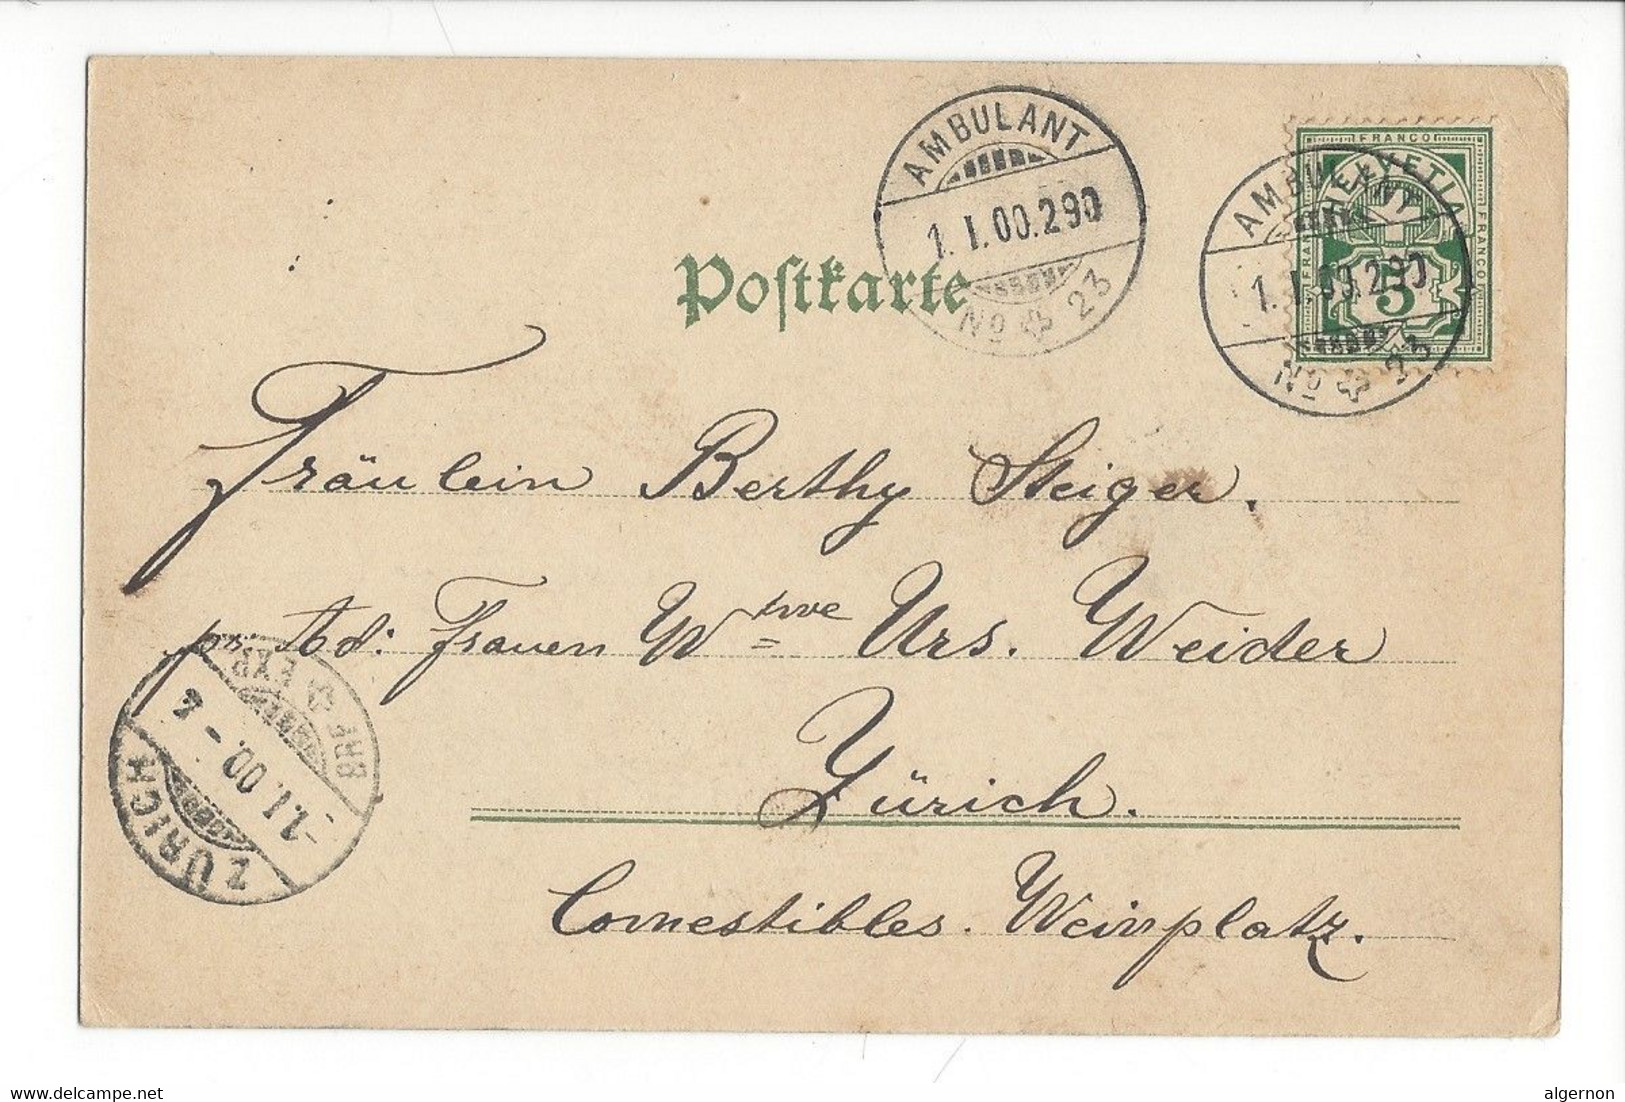 AMBULANT
1. I. 00. 290
No 23
FRANCO
HELVETIA
FRANCO
5
AMBULANT
1. I. 00. 290
No 23
Postkarte
Fräulein Berthy Steiger.
pr. Ad: Frauen Wtwe Urs. Weider
Zürich.
Comestibles. Weinplatz.
ZÜRICH
-1. I. 00. -
BRF. EXP.
www.delcampe.net
algernon